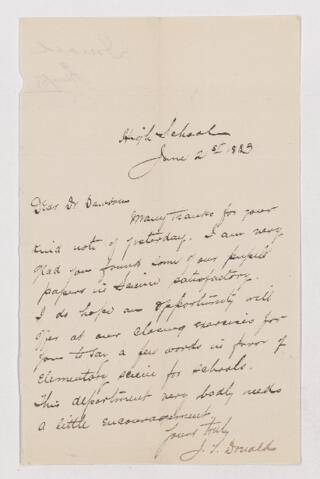 High School
June 2st 1883
Dear Dr Dawson
Many thanks for your
kind note of yesterday. I am very
glad you found some of our pupils
papers in Science satisfactory.
I do hope an opportunity will
offer at our closing exercises for
you to say a few words in favor of
elementary science for schools.
This department very badly needs
a little encouragement.
Yours truly
J. T. Donald